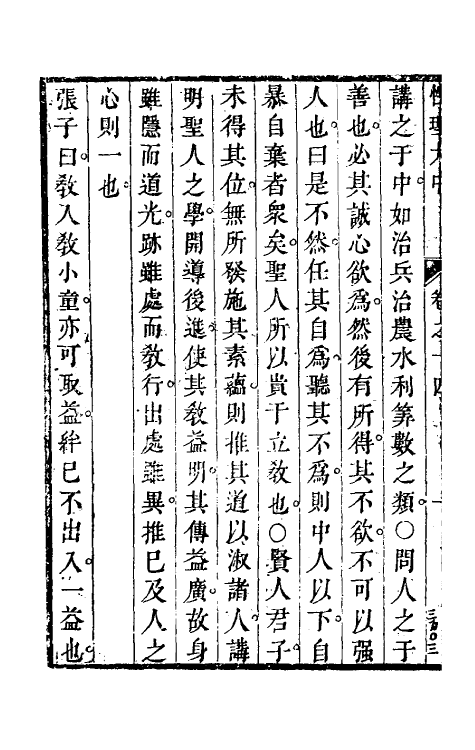 性理大中 卷之十四
講之于中如治兵治農水利筭數之類。○問人之于
善也。必其誠心欲爲然後有所得。其不欲。不可以强
人也。曰是不然。任其自爲。聽其不爲。則中人以下。自
暴自棄者衆矣。聖人所以貴于立敎也。○賢人君子。
未得其位。無所發施其素蘊。則推其道以淑諸人。講
明聖人之學。開導後進。使其敎益明。其傳益廣。故身
雖隱而道光。跡雖處而敎行。出處雖異。推已及人之
心則一也。
張子曰。敎人敎小童。亦可取益。絆已不出入。一益也。